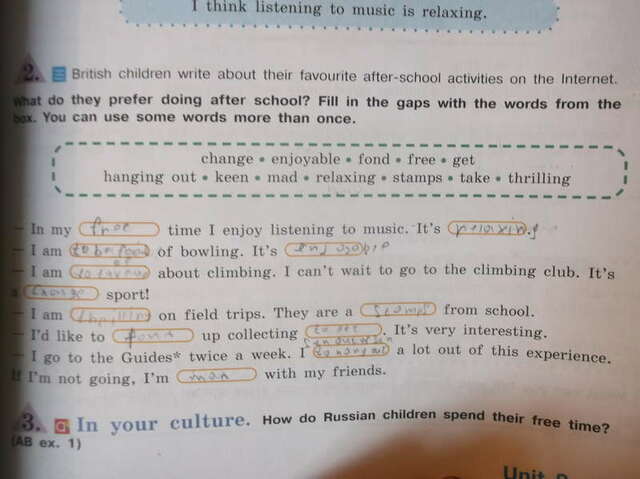 I think listening to music is relaxing.
2. British children write about their favourite after-school activities on the Internet.
What do they prefer doing after school? Fill in the gaps with the words from the
box. You can use some words more than once.
change • enjoyable • fond • free • get
hanging out • keen • mad • relaxing • stamps • take • thrilling
– In my free time I enjoy listening to music. It's relaxing.
– I am of bowling. It's
– I am about climbing. I can't wait to go to the climbing club. It's
a sport!
– I am on field trips. They are a from school.
– I'd like to up collecting . It's very interesting.
– I go to the Guides* twice a week. I a lot out of this experience.
If I'm not going, I'm with my friends.
3. a In your culture. How do Russian children spend their free time?
(AB ex. 1)
Unit